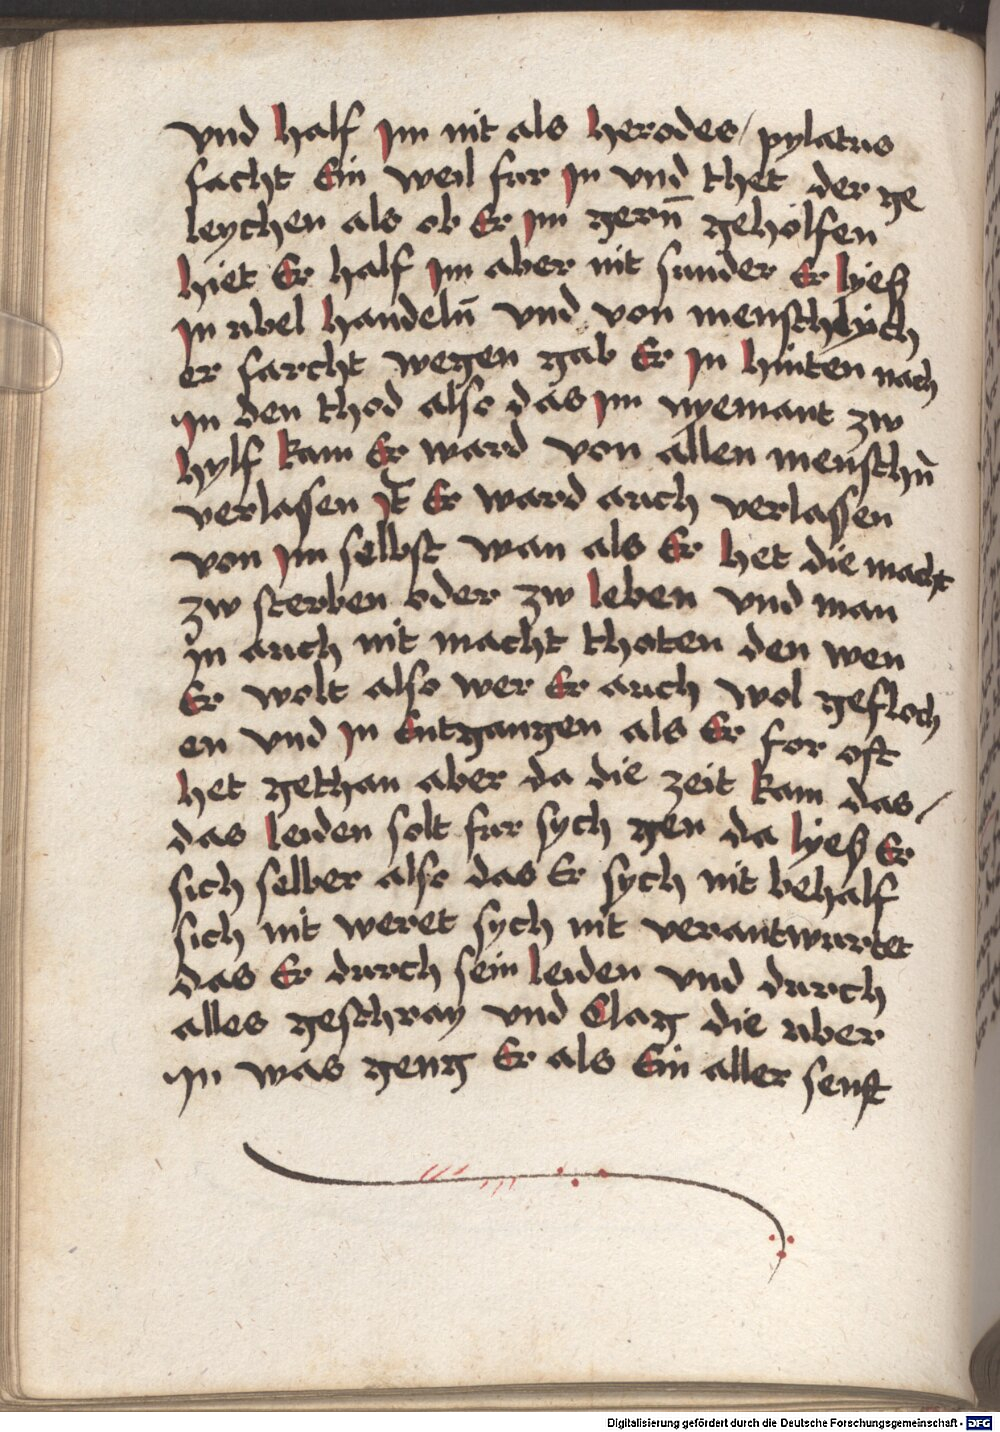 vnd half im nit als herodes / pylatus
facht Ein weil fur in vnd thet der ge
leychen als ob Er im gern̄ geholfen
hiet Er half im aber nit sunder er lyeß
in vbel handeln̄ vnd von menschleych
er farcht wegen gab Er in hinten nach
in den thod also das im nyemant zw
hylf kam Er ward von allen menschn̄
verlassen Er ward auch verlassen
von im selbst wan als Er het die macht
zw sterben oder zw leben vnd man
in auch nit macht thoten den wen
Er wolt also wer Er auch wol gefloch
en vnd in Entgangen als Er for oft
het gethan aber da die zeit kam das /
das leiden solt fur sych gen da lyeß Er
sich selber also das Er sych nit behalf
sich nit weret sych nit verantwurtet
das Er durch sein leiden vnd durch
alles geschray vnd Clag die vber
in was geng Er als Ein aller senft
Digitalisierung gefördert durch die Deutsche Forschungsgemeinschaft - DFG